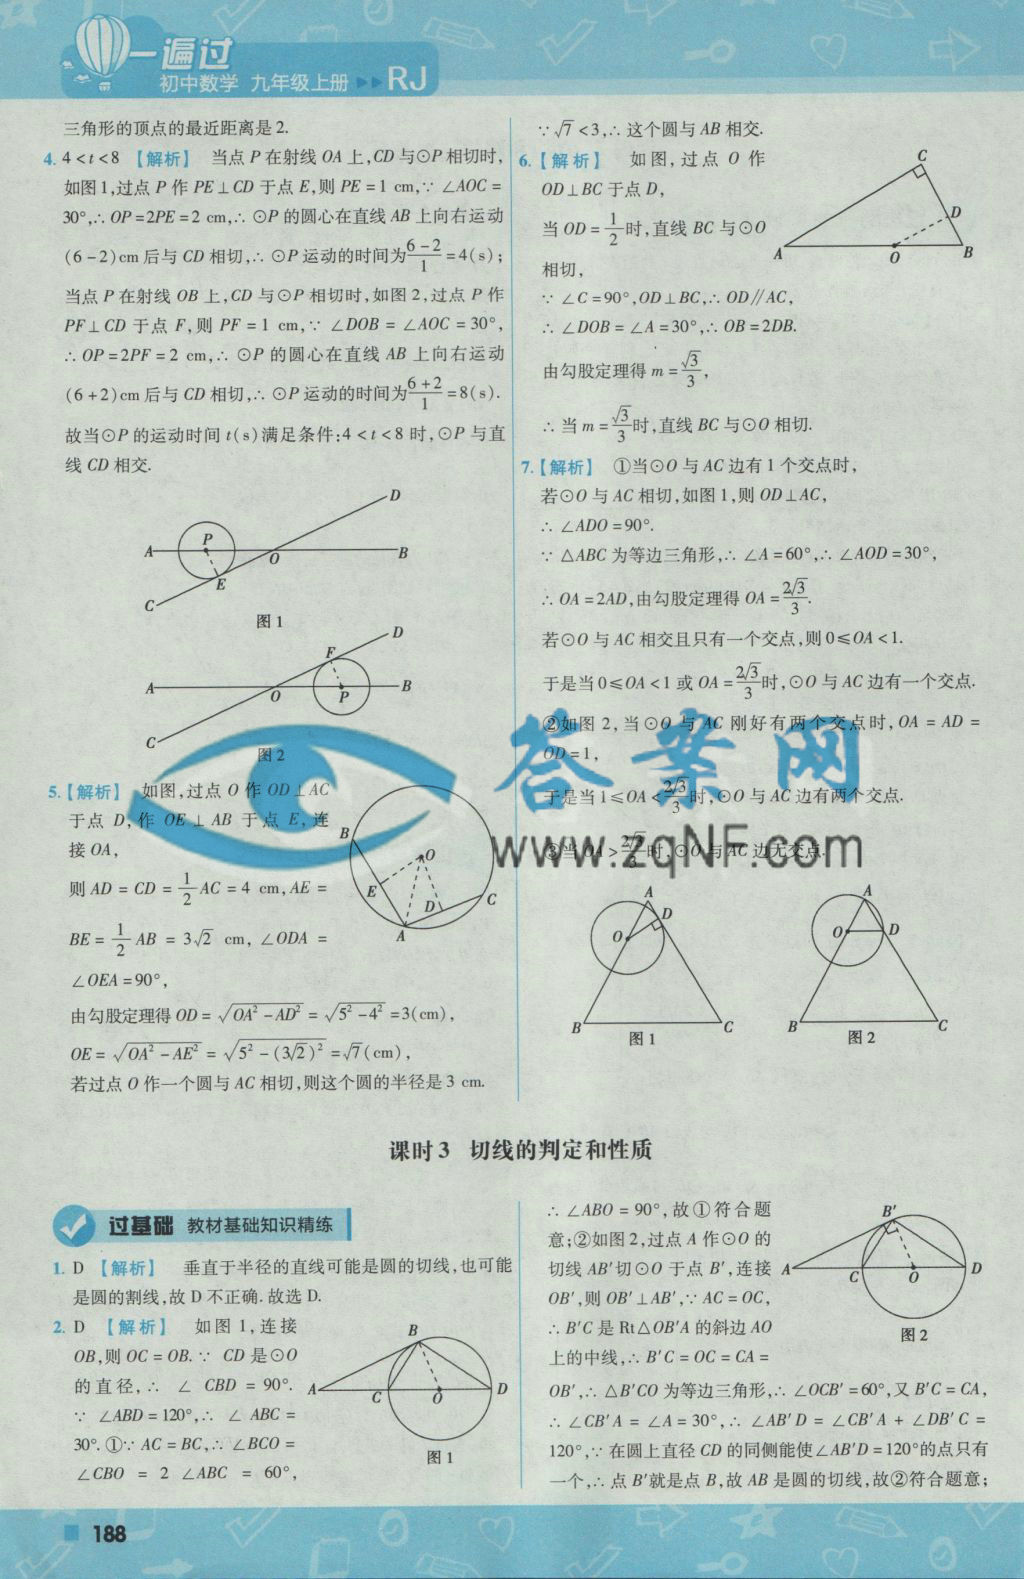 一遍过
初中数学 九年级上册 RJ
三角形的顶点的最近距离是2.
4. 4<t<8 【解析】 当点P在射线OA上,CD与⊙P相切时,
如图1,过点P作PE⊥CD于点E,则PE=1 cm,∵ ∠AOC=
30°,∴ OP=2PE=2 cm,∴ ⊙P的圆心在直线AB上向右运动
(6-2)cm后与CD相切,∴ ⊙P运动的时间为(6-2)/1=4(s);
当点P在射线OB上,CD与⊙P相切时,如图2,过点P作
PF⊥CD于点F,则PF=1 cm,∵ ∠DOB=∠AOC=30°,
∴ OP=2PF=2 cm,∴ ⊙P的圆心在直线AB上向右运动
(6+2)cm后与CD相切,∴ ⊙P运动的时间为(6+2)/1=8(s).
故当⊙P的运动时间t(s)满足条件:4<t<8时,⊙P与直
线CD相交.
A P O B C D E
图1
A O P B C D F
图2
5.【解析】 如图,过点O作OD⊥AC
于点D,作OE⊥AB于点E,连
接OA,
则AD=CD=1/2 AC=4 cm,AE=
BE=1/2 AB=3√2 cm,∠ODA=
∠OEA=90°,
B O E D C A
由勾股定理得OD=√(OA²-AD²)=√(5²-4²)=3(cm),
OE=√(OA²-AE²)=√(5²-(3√2)²)=√7(cm),
若过点O作一个圆与AC相切,则这个圆的半径是3 cm.
∵ √7<3,∴ 这个圆与AB相交.
6.【解析】 如图,过点O作
OD⊥BC于点D,
当OD=1/2时,直线BC与⊙O
相切,
C D A O B
∵ ∠C=90°,OD⊥BC,∴ OD∥AC,
∴ ∠DOB=∠A=30°,∴ OB=2DB.
由勾股定理得m=√3/3,
∴ 当m=√3/3时,直线BC与⊙O相切.
7.【解析】 ①当⊙O与AC边有1个交点时,
若⊙O与AC相切,如图1,则OD⊥AC,
∴ ∠ADO=90°.
∵ △ABC为等边三角形,∴ ∠A=60°,∴ ∠AOD=30°,
∴ OA=2AD,由勾股定理得OA=2√3/3.
若⊙O与AC相交且只有一个交点,则0≤OA<1.
于是当0≤OA<1或OA=2√3/3时,⊙O与AC边有一个交点.
②如图2,当⊙O与AC刚好有两个交点时,OA=AD=
OD=1,
于是当1≤OA<2√3/3时,⊙O与AC边有两个交点.
③当OA>2√3/3时,⊙O与AC边无交点.
答案网
www.zqNF.com
A D O B C
图1
A O D B C
图2
课时3 切线的判定和性质
过基础 教材基础知识精练
1. D 【解析】 垂直于半径的直线可能是圆的切线,也可能
是圆的割线,故D不正确.故选D.
2. D 【解析】 如图1,连接
OB,则OC=OB.∵ CD是⊙O
的直径,∴ ∠CBD=90°.
∵ ∠ABD=120°,∴ ∠ABC=
30°.①∵ AC=BC,∴ ∠BCO=
∠CBO=2∠ABC=60°,
B A C O D
图1
∴ ∠ABO=90°,故①符合题
意;②如图2,过点A作⊙O的
切线AB′切⊙O于点B′,连接
OB′,则OB′⊥AB′,∵ AC=OC,
∴ B′C是Rt△OB′A的斜边AO
上的中线,∴ B′C=OC=CA=
B′ A C O D
图2
OB′,∴ △B′CO为等边三角形,∴ ∠OCB′=60°,又B′C=CA,
∴ ∠CB′A=∠A=30°,∴ ∠AB′D=∠CB′A+∠DB′C=
120°,∵ 在圆上直径CD的同侧能使∠AB′D=120°的点只有
一个,∴ 点B′就是点B,故AB是圆的切线,故②符合题意;
188